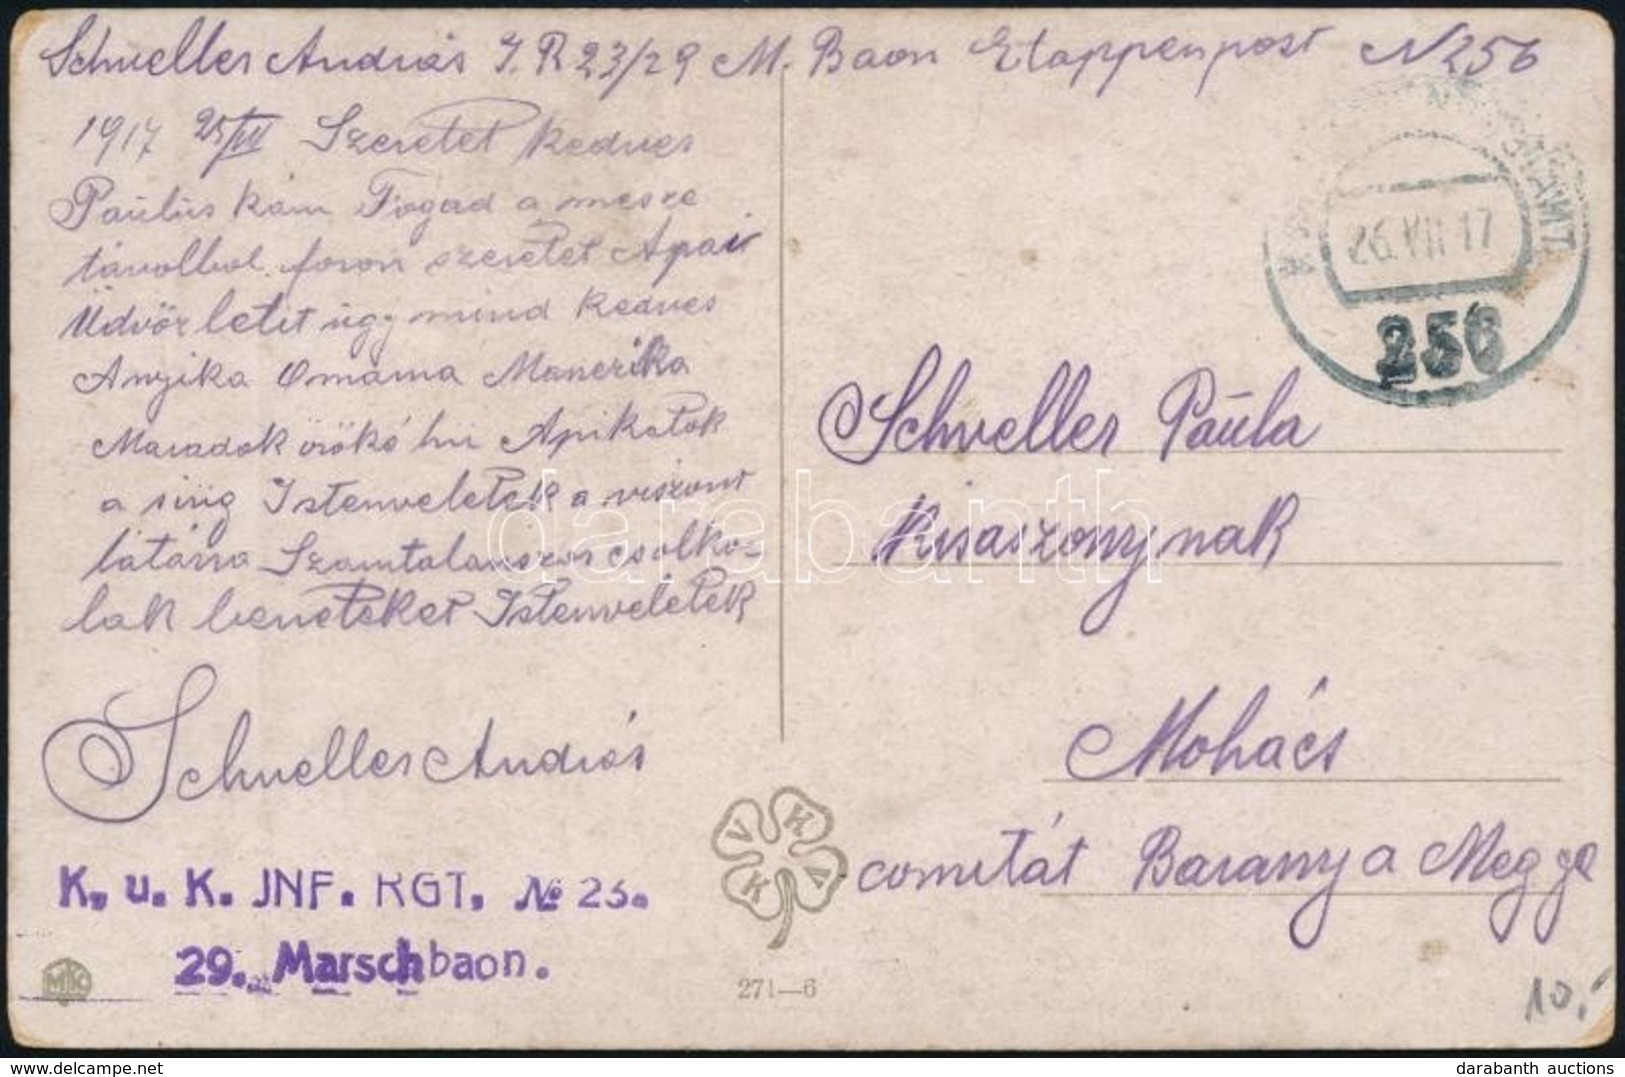 Schneller András I.R 23/29 M. Baon Etappenpost N 256
1917 25/VII Szeretet kedves
Paulus kám Fogad a mesze
távolbol foron szeretet Apai
Üdvöz letit úgy mind kedves
Anyika Omama Manerika
Maradok örökö hü Apikatok
a sirig Istenveletek a viszont
látásra Szamtalanszor csolko-
lak beneteket Istenveletek
Schneller András
K. u. K. INF. RGT. No 23.
29. Marschbaon.
MK
V H V K
271—6
26. VII 17
256
Schneller Paula
Kisaszonynak
Mohács
comitát Baranya Megye
10,-
darabanth
darabanth auctions